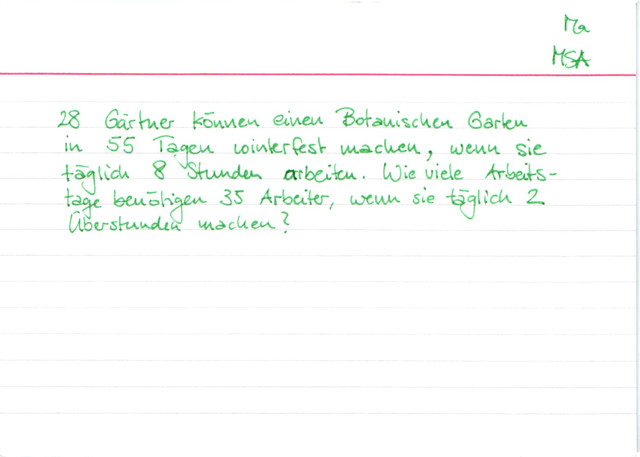 Ma
MSA
28 Gärtner können einen Botanischen Garten
in 55 Tagen winterfest machen, wenn sie
täglich 8 Stunden arbeiten. Wie viele Arbeits-
tage benötigen 35 Arbeiter, wenn sie täglich 2
Überstunden machen?